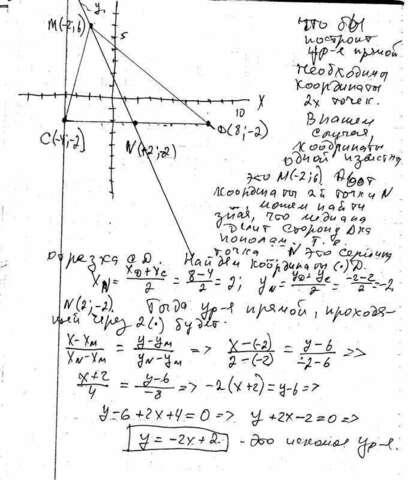 y,
M(-2;6)
5
X
10
C(-4;-2)
D(8;-2)
N(+2;-2)
Что бы
построит
ур-я прямой
Необходимы
координаты
2х точек.
В нашем
случая,
координаты
одной известна
это M(-2;6) А вот
координаты ой точки N
можем найти
зная, что медиана
делит сторону
пополам. Т. е.
точка N это середина
отрезка CD. Найдем координаты (·) D.
x_N = (x_D + x_C)/2 = (8-4)/2 = 2; y_N = (y_D + y_C)/2 = (-2-2)/2 = -2
N(2;-2) Тогда ур-я прямой, проходя-
щей через 2(·) будет.
(x-x_M)/(x_N-x_M) = (y-y_M)/(y_N-y_M) => (x-(-2))/(2-(-2)) = (y-6)/(-2-6) =>
(x+2)/4 = (y-6)/-8 => -2(x+2)=y-6 =>
y-6+2x+4=0 => y+2x-2=0 =>
y=-2x+2. - это искомая ур-я.